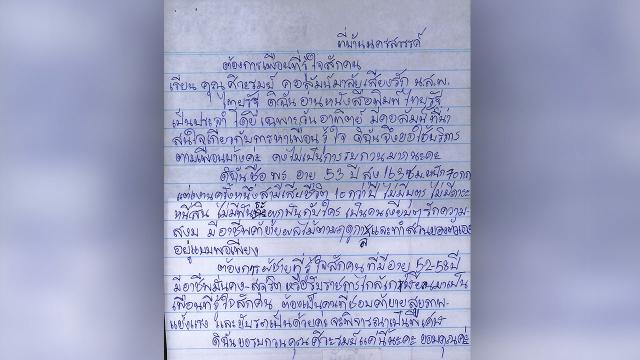 ที่บ้านนครสวรรค์
ต้องการเพื่อนที่รู้ใจสักคน
เรียน คุณ ศิระรมย์ คอลัมน์มาลัยเสี่ยงรัก น.ส.พ.
ไทยรัฐ ดิฉันอ่านหนังสือพิมพ์ไทยรัฐ
เป็นประจำ โดยเฉพาะวันอาทิตย์ มีคอลัมน์ที่น่า
สนใจเกี่ยวกับการหาเพื่อนรู้ใจ ดิฉันจึงขอใช้บริการ
ตามเพื่อนบ้างค่ะ คงไม่เป็นการรบกวนมากนะคะ
ดิฉันชื่อ พร อายุ 53 ปี สูง 163 ซม. หนัก
แต่งงานครั้งหนึ่งสามีเสียชีวิต 10 กว่าปี ไม่มีบุตร ไม่มีภาระ
หนี้สิน ไม่มีพันธะผูกพันกับใคร เป็นคนเงียบๆ รักความ
สงบ มีอาชีพค้าขายผลไม้ตามฤดูกาลและทำสวนของตัวเอง
อยู่แบบพอเพียง
ต้องการผู้ชายที่รู้ใจสักคนที่มีอายุ 52-58 ปี
มีอาชีพมั่นคง-สุจริต หรือรับราชการใกล้เกษียณมาเป็น
เพื่อนที่รู้ใจสักคน ต้องเป็นคนที่ชอบค้าขาย สุขภาพ
แข็งแรง และขับรถเป็นด้วยค่ะจะพิจารณาเป็นพิเศษ
ดิฉันขอรบกวนคุณศิระรมย์แค่นี้นะคะ ขอบคุณค่ะ